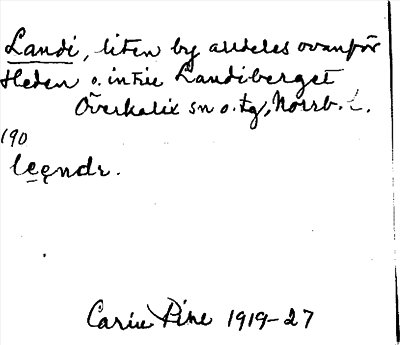 Landi, liten by alldeles ovanför
Heden o. intill Landiberget
Överkalix sn o. tg, Norrb. L.
190
leendr.
Carin Pihl 1919-27